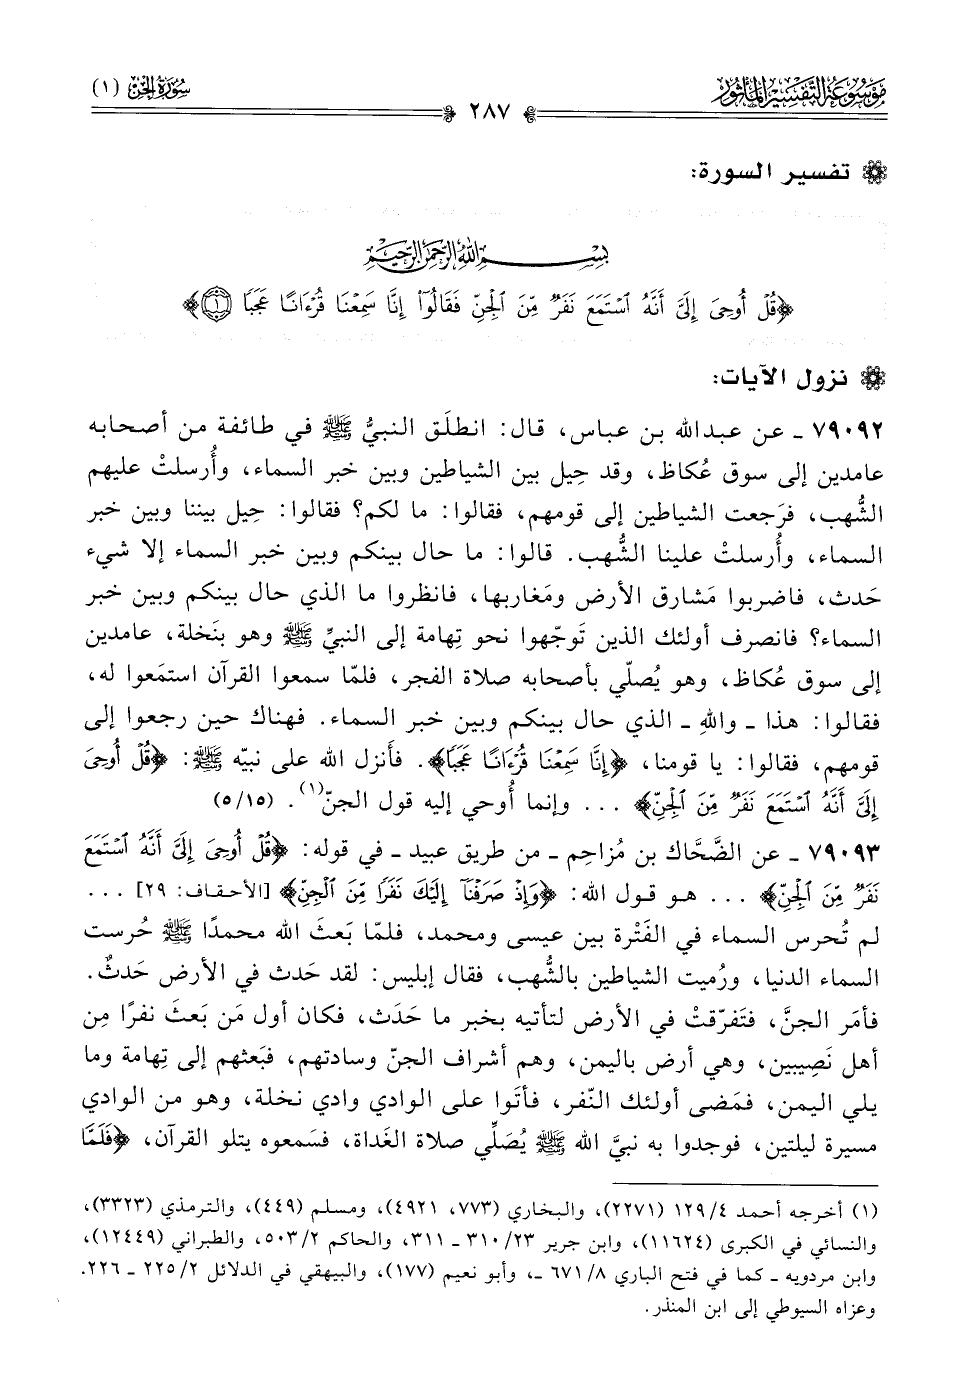 مَوْسُوعَةُ التَّفْسِيرِ المَأْثُور
سُورَةُ الجِنّ (١)
٢٨٧
تفسير السورة:
بِسْمِ اللَّهِ الرَّحْمَنِ الرَّحِيمِ
﴿قُلْ أُوحِىَ إِلَىَّ أَنَّهُ ٱسْتَمَعَ نَفَرٌ مِّنَ ٱلْجِنِّ فَقَالُوٓا۟ إِنَّا سَمِعْنَا قُرْءَانًا عَجَبًا ۝١﴾
نزول الآيات:
٧٩٠٩٢ ـ عن عبدالله بن عباس، قال: انطلَق النبيُّ ﷺ في طائفة من أصحابه
عامدين إلى سوق عُكاظ، وقد حِيل بين الشياطين وبين خبر السماء، وأُرسلتْ عليهم
الشُّهب، فرَجعت الشياطين إلى قومهم، فقالوا: ما لكم؟ فقالوا: حِيل بيننا وبين خبر
السماء، وأُرسلتْ علينا الشُّهب. قالوا: ما حال بينكم وبين خبر السماء إلا شيء
حَدث، فاضربوا مَشارق الأرض ومَغاربها، فانظروا ما الذي حال بينكم وبين خبر
السماء؟ فانصرف أولئك الذين تَوجّهوا نحو تِهامة إلى النبيِّ ﷺ وهو بنَخلة، عامدين
إلى سوق عُكاظ، وهو يُصلّي بأصحابه صلاة الفجر، فلمّا سمعوا القرآن استمَعوا له،
فقالوا: هذا ـ واللهِ ـ الذي حال بينكم وبين خبر السماء. فهناك حين رجعوا إلى
قومهم، فقالوا: يا قومنا، ﴿إِنَّا سَمِعْنَا قُرْءَانًا عَجَبًا﴾. فأنزل الله على نبيّه ﷺ: ﴿قُلْ أُوحِىَ
إِلَىَّ أَنَّهُ ٱسْتَمَعَ نَفَرٌ مِّنَ ٱلْجِنِّ﴾ ... وإنما أُوحي إليه قول الجنّ(١). (٥/١٥)
٧٩٠٩٣ ـ عن الضَّحَّاك بن مُزاحِم ـ من طريق عبيد ـ في قوله: ﴿قُلْ أُوحِىَ إِلَىَّ أَنَّهُ ٱسْتَمَعَ
نَفَرٌ مِّنَ ٱلْجِنِّ﴾ ... هو قول الله: ﴿وَإِذْ صَرَفْنَآ إِلَيْكَ نَفَرًا مِّنَ ٱلْجِنِّ﴾ [الأحقاف: ٢٩] ...
لم تُحرس السماء في الفَتْرة بين عيسى ومحمد، فلمّا بَعثَ الله محمدًا ﷺ حُرست
السماء الدنيا، ورُميت الشياطين بالشُّهب، فقال إبليس: لقد حَدث في الأرض حَدثٌ.
فأمَر الجنَّ، فتَفرّقتْ في الأرض لتأتيه بخبر ما حَدَث، فكان أول مَن بَعثَ نفرًا مِن
أهل نَصِيبين، وهي أرض باليمن، وهم أشراف الجنّ وسادتهم، فبَعثهم إلى تِهامة وما
يلي اليمن، فمَضى أولئك النّفر، فأتَوا على الوادي وادي نخلة، وهو من الوادي
مسيرة ليلتين، فوجدوا به نبيَّ الله ﷺ يُصَلِّي صلاة الغَداة، فسَمعوه يتلو القرآن، ﴿فَلَمَّا
(١) أخرجه أحمد ٤/ ١٢٩ (٢٢٧١)، والبخاري (٧٧٣، ٤٩٢١)، ومسلم (٤٤٩)، والترمذي (٣٣٢٣)،
والنسائي في الكبرى (١١٦٢٤)، وابن جرير ٢٣/ ٣١٠ ـ ٣١١، والحاكم ٢/ ٥٠٣، والطبراني (١٢٤٤٩)،
وابن مردويه ـ كما في فتح الباري ٨/ ٦٧١ ـ، وأبو نعيم (١٧٧)، والبيهقي في الدلائل ٢/ ٢٢٥ ـ ٢٢٦.
وعزاه السيوطي إلى ابن المنذر.